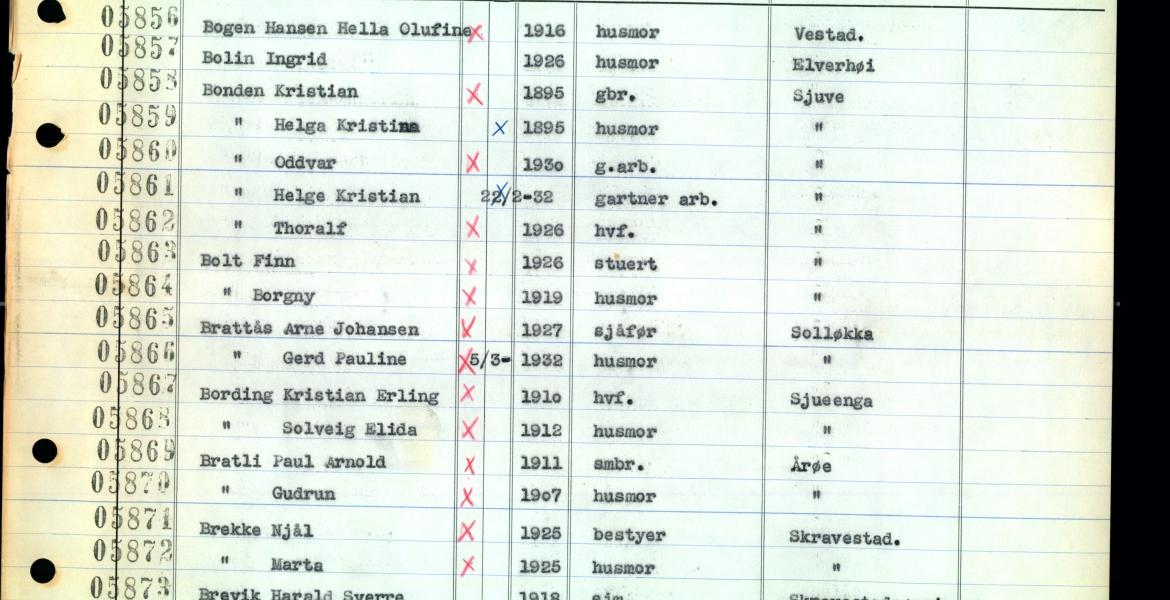 05856 Bogen Hansen Hella Olufine x 1916 husmor Vestad.
05857 Bolin Ingrid 1926 husmor Elverhøi
05858 Bonden Kristian x 1895 gbr. Sjuve
05859 " Helga Kristina x 1895 husmor "
05860 " Oddvar x 193o g.arb. "
05861 " Helge Kristian x 22/2-32 gartner arb. "
05862 " Thoralf x 1926 hvf. "
05863 Bolt Finn x 1926 stuert "
05864 " Borgny x 1919 husmor "
05865 Brattås Arne Johansen x 1927 sjåfør Solløkka
05866 " Gerd Pauline x 5/3- 1932 husmor "
05867 Bording Kristian Erling x 191o hvf. Sjueenga
05868 " Solveig Elida x 1912 husmor "
05869 Bratli Paul Arnold x 1911 smbr. Årøe
05870 " Gudrun x 19o7 husmor "
05871 Brekke Njål x 1925 bestyer Skravestad.
05872 " Marta x 1925 husmor "
05873 Brevik Harald Sverre 1918